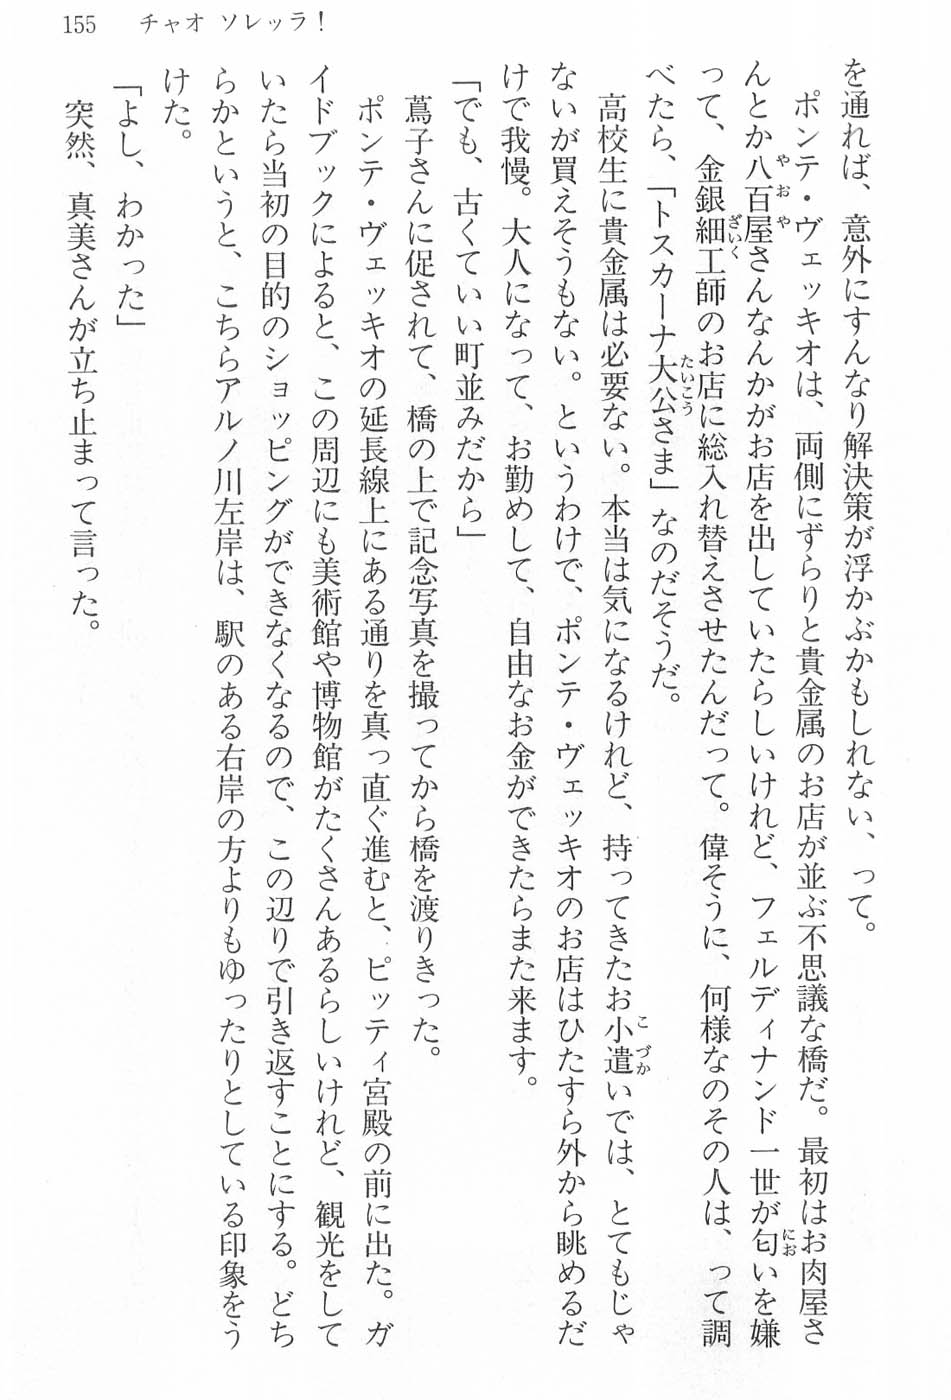 155　チャオ ソレッラ！
を通れば、意外にすんなり解決策が浮かぶかもしれない、って。
　ポンテ・ヴェッキオは、両側にずらりと貴金属のお店が並ぶ不思議な橋だ。最初はお肉屋さ
んとか八百屋さんなんかがお店を出していたらしいけれど、フェルディナンド一世が匂いを嫌
って、金銀細工師のお店に総入れ替えさせたんだって。偉そうに、何様なのその人は、って調
べたら、「トスカーナ大公さま」なのだそうだ。
　高校生に貴金属は必要ない。本当は気になるけれど、持ってきたお小遣いでは、とてもじゃ
ないが買えそうもない。というわけで、ポンテ・ヴェッキオのお店はひたすら外から眺めるだ
けで我慢。大人になって、お勤めして、自由なお金ができたらまた来ます。
「でも、古くていい町並みだから」
　蔦子さんに促されて、橋の上で記念写真を撮ってから橋を渡りきった。
　ポンテ・ヴェッキオの延長線上にある通りを真っ直ぐ進むと、ピッティ宮殿の前に出た。ガ
イドブックによると、この周辺にも美術館や博物館がたくさんあるらしいけれど、観光をして
いたら当初の目的のショッピングができなくなるので、この辺りで引き返すことにする。どち
らかというと、こちらアルノ川左岸は、駅のある右岸の方よりもゆったりとしている印象をう
けた。
「よし、わかった」
　突然、真美さんが立ち止まって言った。